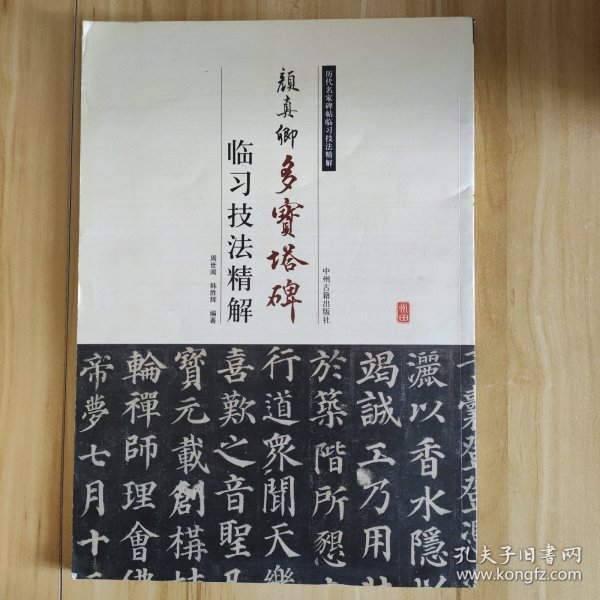 历代名家碑帖临习技法精解
颜真卿多寳塔碑
临习技法精解
周世闻 韩胜辉 编著
中州古籍出版社
千囊登登
灑以香水隱以
竭誠工乃用
於築階所懇
行道眾聞天樂
喜歎之音聖凡
寶元載創構
輪禪師理會佛
帝夢七月十
孔夫子旧书网
www.kongfz.com